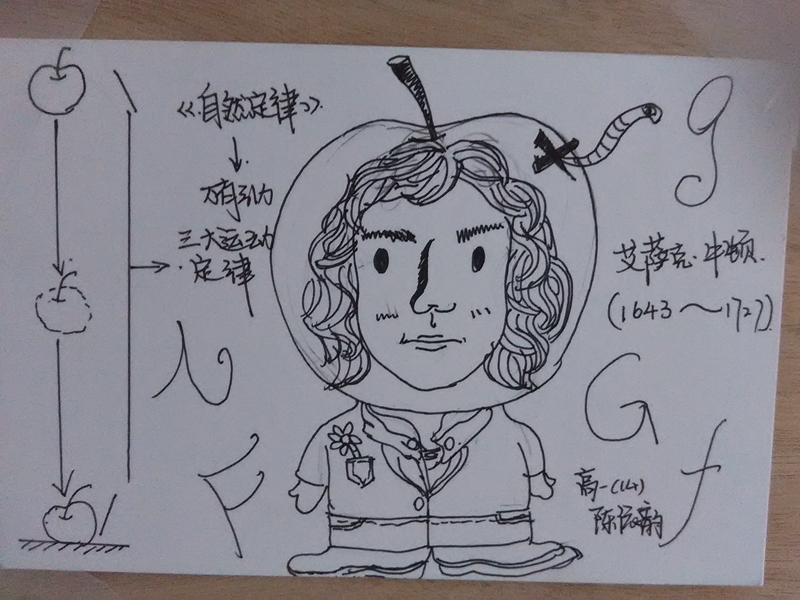 《自然定律》
万有引力
三大运动
定律
N
F
g
艾萨克·牛顿
(1643～1727)
G
f
高一(14)